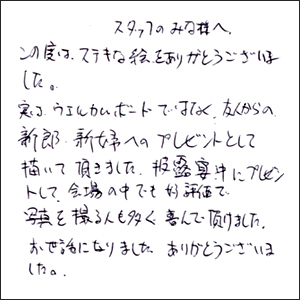 スタッフのみな様へ、
この度は、ステキな絵をありがとうございま
した。
実は、ウエルカムボードではなく、友人からの
新郎・新婦へのプレゼントとして
描いて頂きました。披露宴中にプレゼン
トして、会場の中でも好評価で
写真を撮る人も多く喜んで頂けました。
お世話になりました ありがとうございま
した。